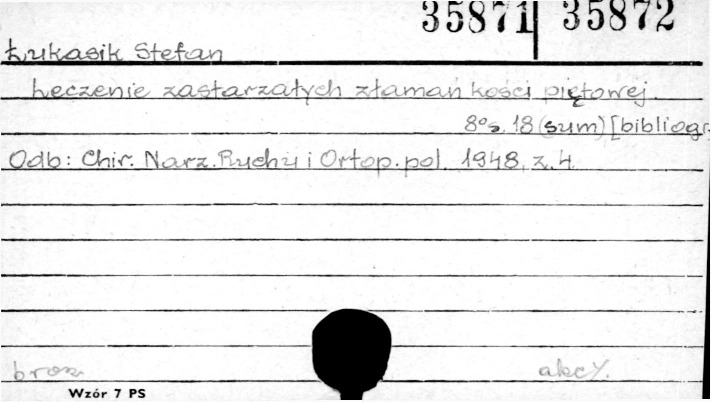 35871 35872
Łukasik Stefan
Leczenie zastarzałych złamań kości piętowej
8° s. 18 (sum) [bibliogr
Odb: Chir. Narz. Ruchu i Ortop. pol. 1948, z. 4
brosz akcY.
Wzór 7 PS